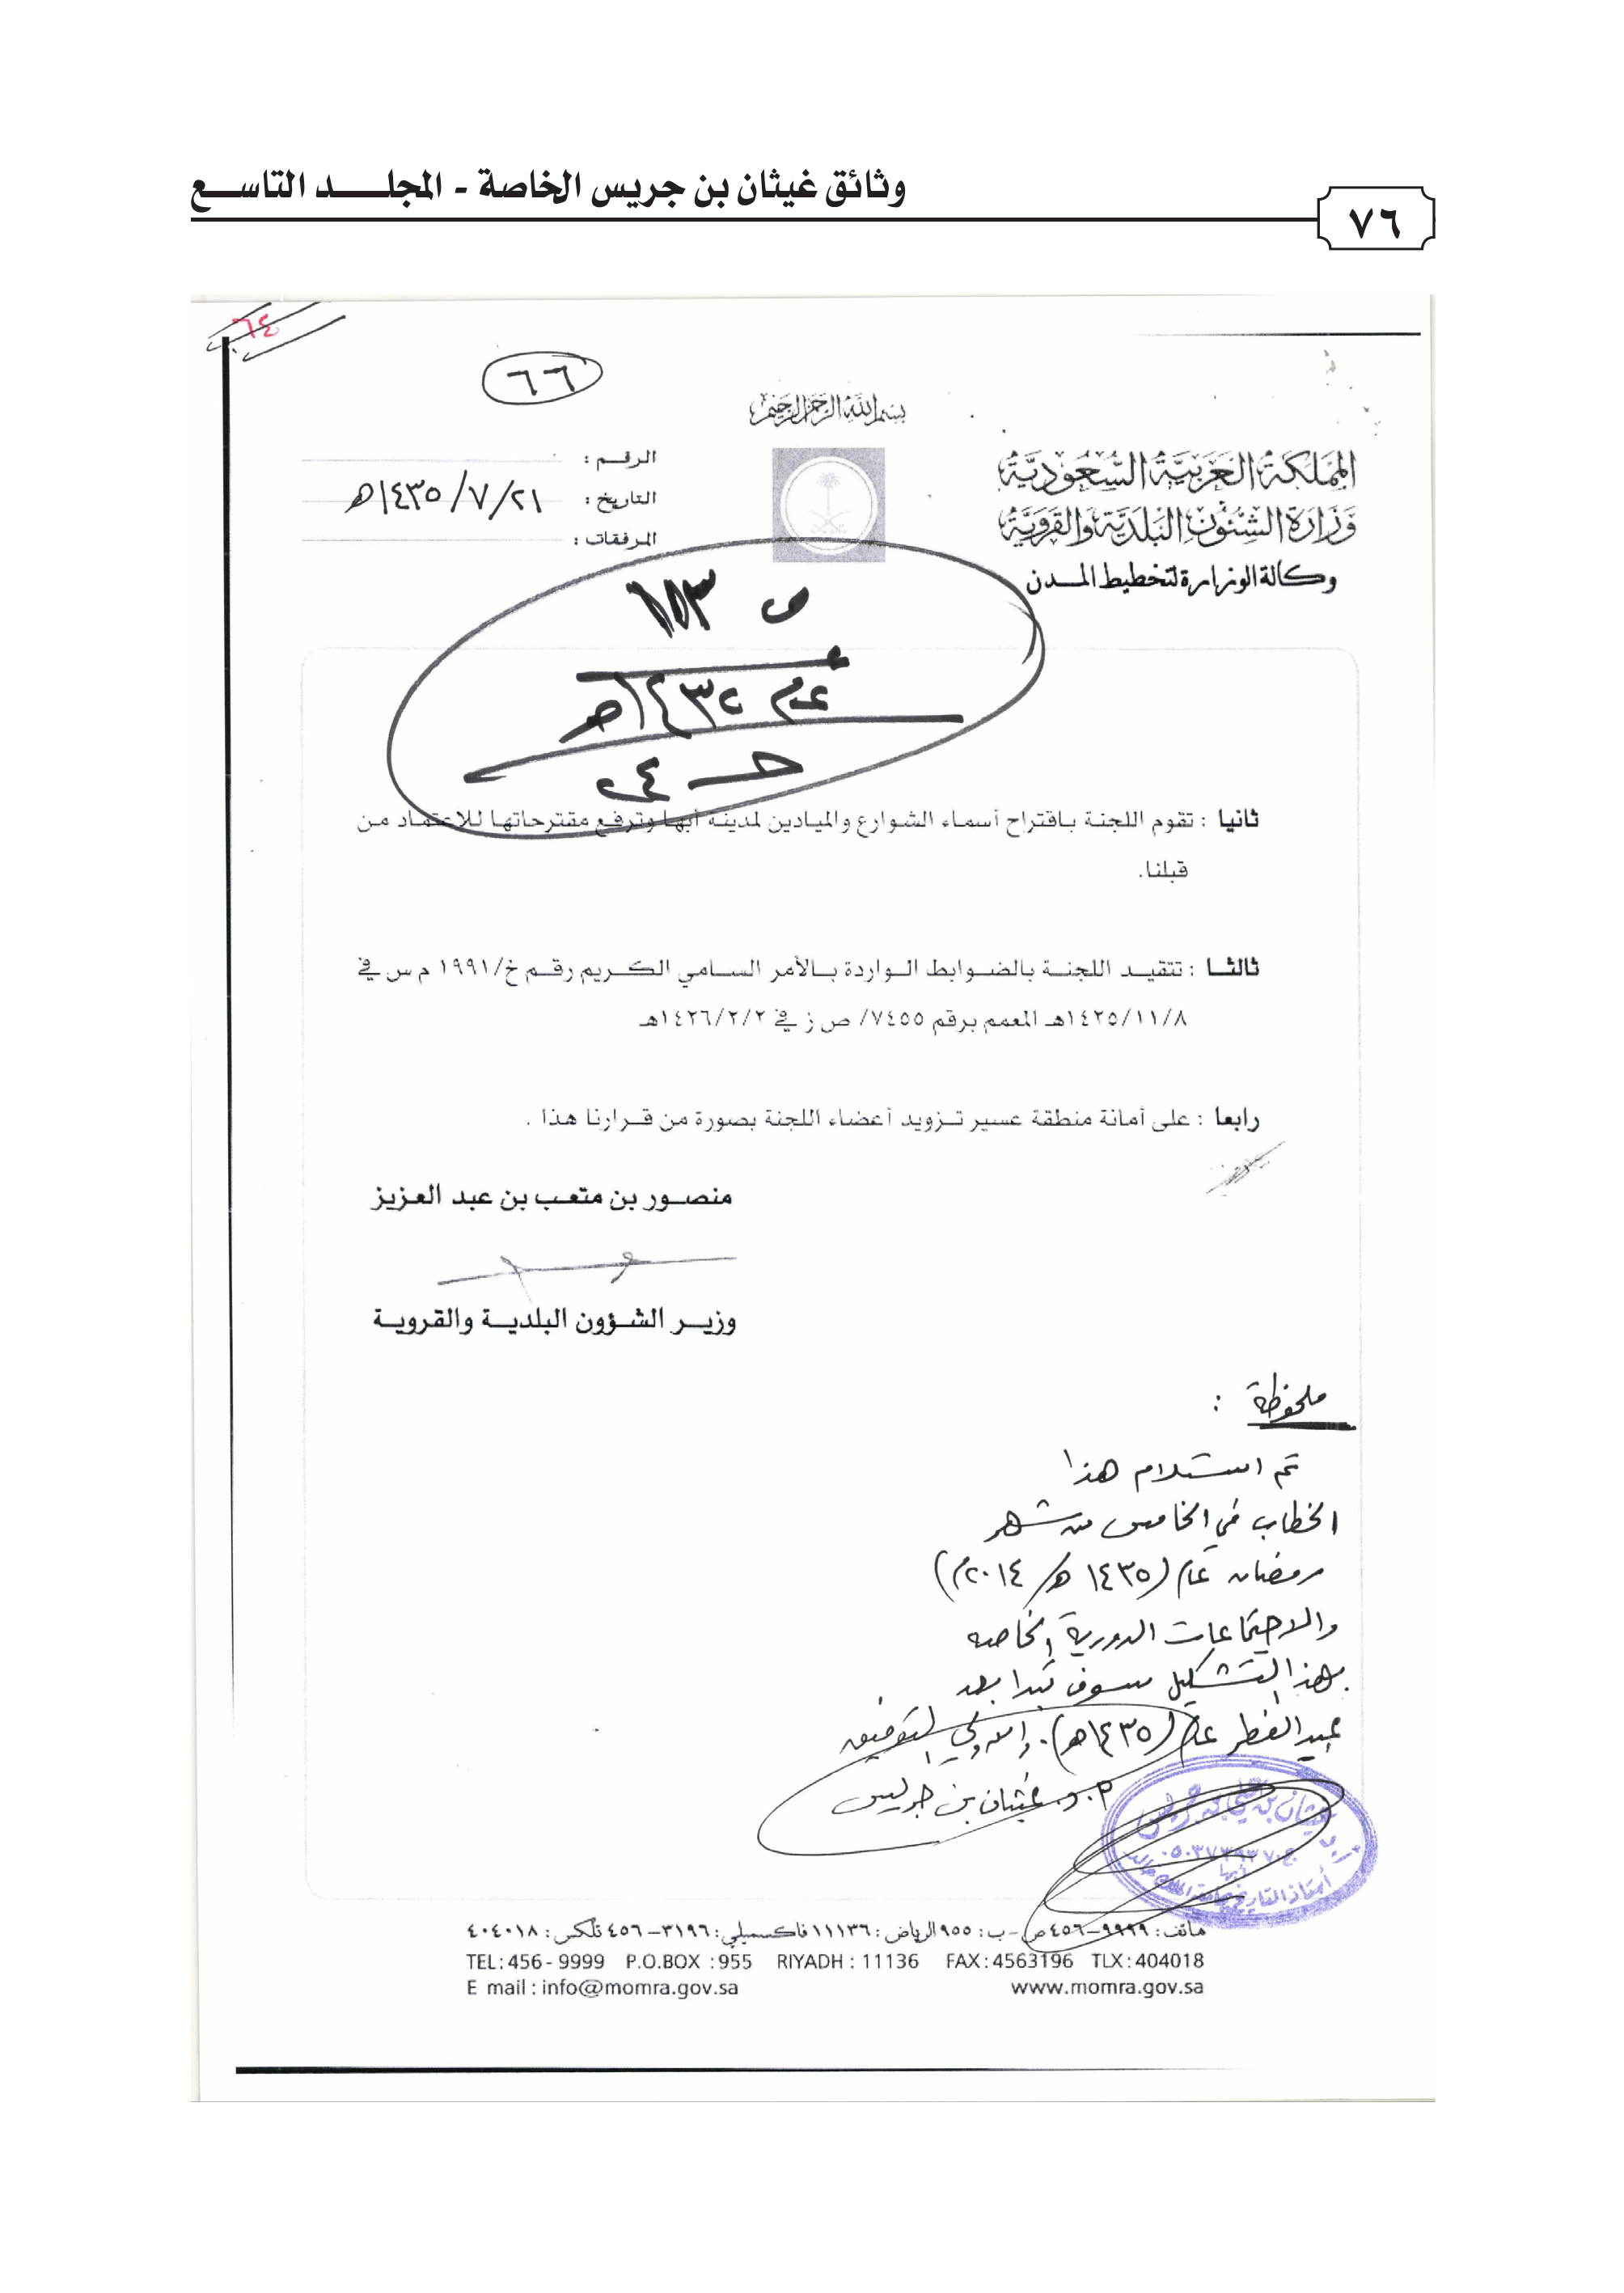 وثائق غيثان بن جريس الخاصة - المجلد التاسع
٧٦
٦٤
٦٦
بسم الله الرحمن الرحيم
المملكة العربية السعودية
وزارة الشئون البلدية والقروية
وكالة الوزارة لتخطيط المدن
الرقم :
التاريخ : ١٤٣٥/٧/٢١ه
المرفقات :
ص
عام ١٤٣٢هـ
ثانيا : تقوم اللجنة باقتراح أسماء الشوارع والميادين لمدينة أبها وترفع مقترحاتها للاعتماد من
قبلنا.
ثالثا : تتقيد اللجنة بالضوابط الواردة بالأمر السامي الكريم رقم خ/١٩٩١ م س في
١٤٢٥/١١/٨هـ المعمم برقم ٧٤٥٥/ ص ز في ١٤٢٦/٢/٢هـ
رابعا : على أمانة منطقة عسير تزويد أعضاء اللجنة بصورة من قرارنا هذا .
منصور بن متعب بن عبد العزيز
وزير الشؤون البلدية والقروية
ملحوظة :
تم استلام هذا
الخطاب في الخامس من شهر
رمضان عام (١٤٣٥ هـ/ ٢٠١٤م)
والاجتماعات الدورية الخاصه
بهذا التشكيل سوف تبدا بعد
عيد الفطر عام (١٤٣٥هـ). والله ولي التوفيق
أ. د. غيثان بن جريس
أ.د غيثان بن علي بن جريس
أبها
هاتف : ٩٩٩٩–٤٥٦ ص – ب : ٩٥٥ الرياض : ١١١٣٦ فاكسميلي : ٣١٩٦–٤٥٦ تلكس : ٤٠٤٠١٨
TEL : 456 - 9999 P.O.BOX : 955 RIYADH : 11136 FAX : 4563196 TLX : 404018
E mail : info@momra.gov.sa www.momra.gov.sa